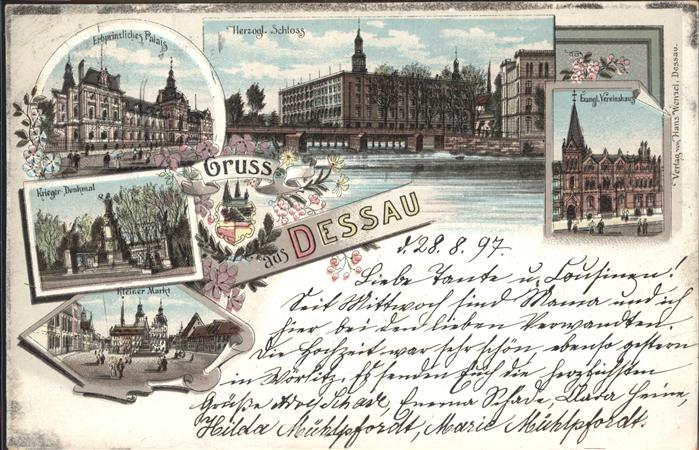 Erbprinzliches Palais
Herzogl. Schloss
Evangl. Vereinshaus
Verlag von Hans Wenzel, Dessau.
Krieger-Denkmal
Kleiner Markt
Gruss
aus DESSAU
d. 28. 8. 97.
Liebe Tante u. Cousinen!
Seit Mittwoch sind Mama und ich
hier bei den lieben Verwandten.
Die Hochzeit war sehr schön, ebenso gestern
in Wörlitz. Es senden Euch die herzlichsten
Grüße Schade, Emma Schade, Heine,
Hilda Mühlpfordt, Marie Mühlpfordt.